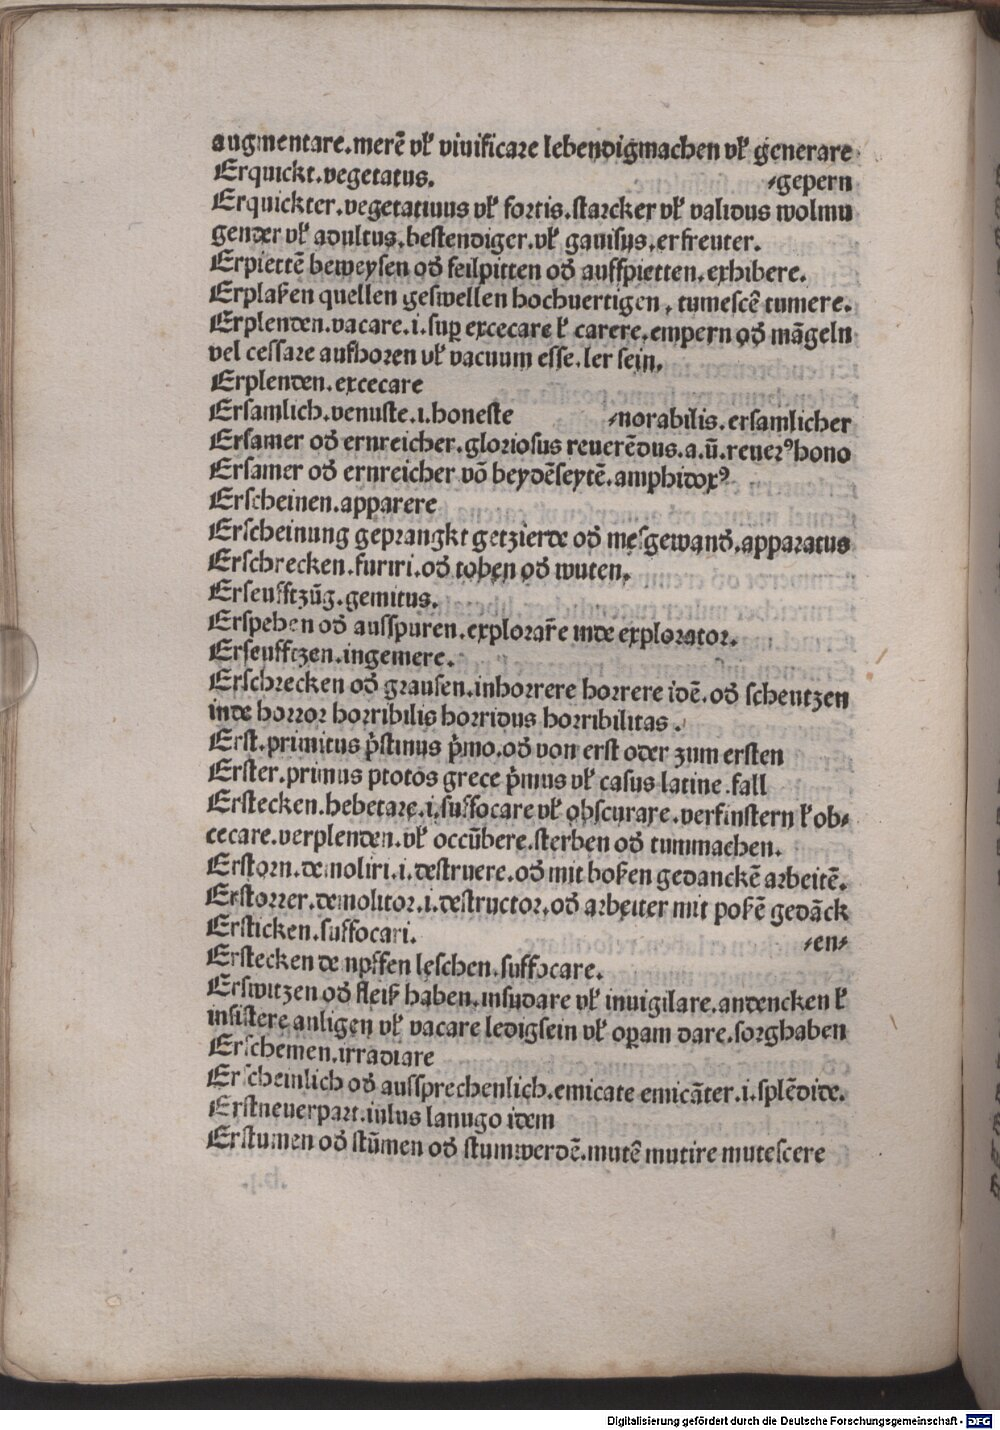 augmentare.merē vł viuificare lebendigmachen vł generare
Erquickt.vegetatus. ⸗gepern
Erquickter.vegetatiuus vł fortis.starcker vł validus wolmu
gender vł adultus.bestendiger.vł gauisus.erfreuter.
Erpiettē beweysen od̕ feilpitten od̕ auffpietten.exhibere.
Erplaßen quellen geswellen hochuertigen.tumescē tumere.
Erplenden.vacare.i.suꝑ excecare ł carere.empern od̕ mãgeln
vel cessare aufhoren vł vacuum esse.ler sein.
Erplenden.excecare
Ersamlich.venuste.i.honeste ⸗norabilis.ersamlicher
Ersamer od̕ ernreicher.gloriosus reuerēdus.a.ū.reuerꝰhono
Ersamer od̕ ernreicher võ beydēseytē.amphidoxꝰ
Erscheinen.apparere
Erscheinung geprangkt getzierde od̕ mesgewand̕.apparatus
Erschrecken.furiri.od̕ toben od̕ wuten.
Erseufftzūg.gemitus.
Erspehen od̕ ausspuren.explorar̄e inde explorator.
Erseufftzen.ingemere.
Erschrecken od̕ grausen.inhorrere horrere idē.od̕ scheutzen
inde horror horribilis horridus horribilitas.
Erst.primitus p̄stinus p̄mo.od̕ von erst oder zum ersten
Erster.primus ptotos grece p̄mus vł casus latine.fall
Erstecken.hebetare.i.suffocare vł obscurare.verfinstern ł ob⸗
cecare.verplenden.vł occūbere.sterben od̕ tummachen.
Erstorn.demoliri.i.destruere.od̕ mit boßen gedanckē arbeitē.
Erstorrer.demolitor.i.destructor.od̕ arbeiter mit poßē gedāck
Ersticken.suffocari. ⸗en⸗
Erstecken de npffen leschen.suffocare.
Erswitzen od̕ fleiß haben.insudare vł inuigilare.andencken ł
insistere anligen vł vacare ledigsein vł oꝑam dare.sorghaben
Erschemen.irradiare
Erscheinlich od̕ aussprechenlich.emicate emicāter.i.splēdide.
Erstneuerpart.iulus lanugo idem
Erstumen od̕ stūmen od̕ stumwerdē.mutē mutire mutescere
Digitalisierung gefördert durch die Deutsche Forschungsgemeinschaft - DFG